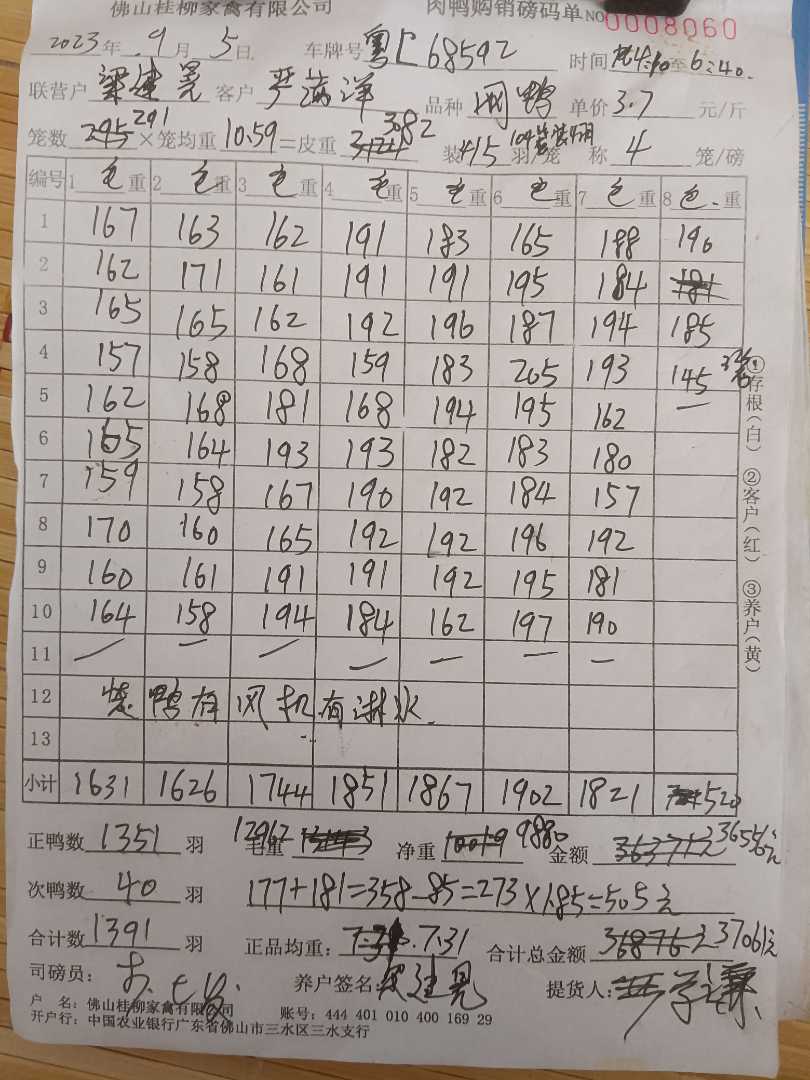 佛山桂柳家禽有限公司 肉鸭购销磅码单 NO 0008060
2023年 9月 5日 车牌号 粤L68592 时间 至6:40.
联营户 梁建晃 客户 严满洋 品种 单价 3.7 元/斤
291 3082
笼数 295 ×笼均重 10.59 =皮重 装 415 羽/笼 称 4 笼/磅
编号 1 毛重 2 毛重 3 毛重 4 毛重 5 毛重 6 毛重 7 毛重 8 毛重
1 167 163 162 191 183 165 188 190
2 162 171 161 191 191 195 184 181
3 165 165 162 192 196 187 194 185
4 157 158 168 159 183 205 193 145
5 162 168 181 168 194 195 162 —
6 165 164 193 193 182 183 180
7 159 158 167 190 192 184 157
8 170 160 165 192 192 196 192
9 160 161 191 191 192 195 181
10 164 158 194 184 162 197 190
11 — — — — — — —
12 鸭有风机有淋水.
13
小计 1631 1626 1744 1851 1867 1902 1821 520
正鸭数 1351 羽 毛重 12962 净重 10019 9880 金额 36371元 36556元
次鸭数 40 羽 177+181=358-85=273×1.85=505元
合计数 1391 羽 正品均重: 7.31 合计总金额 36876元 37061元
司磅员: 养户签名: 梁建晃 提货人:
户 名: 佛山桂柳家禽有限公司 账号: 444 401 010 400 169 29
开户行: 中国农业银行广东省佛山市三水区三水支行
①存根(白) ②客户(红) ③养户(黄)